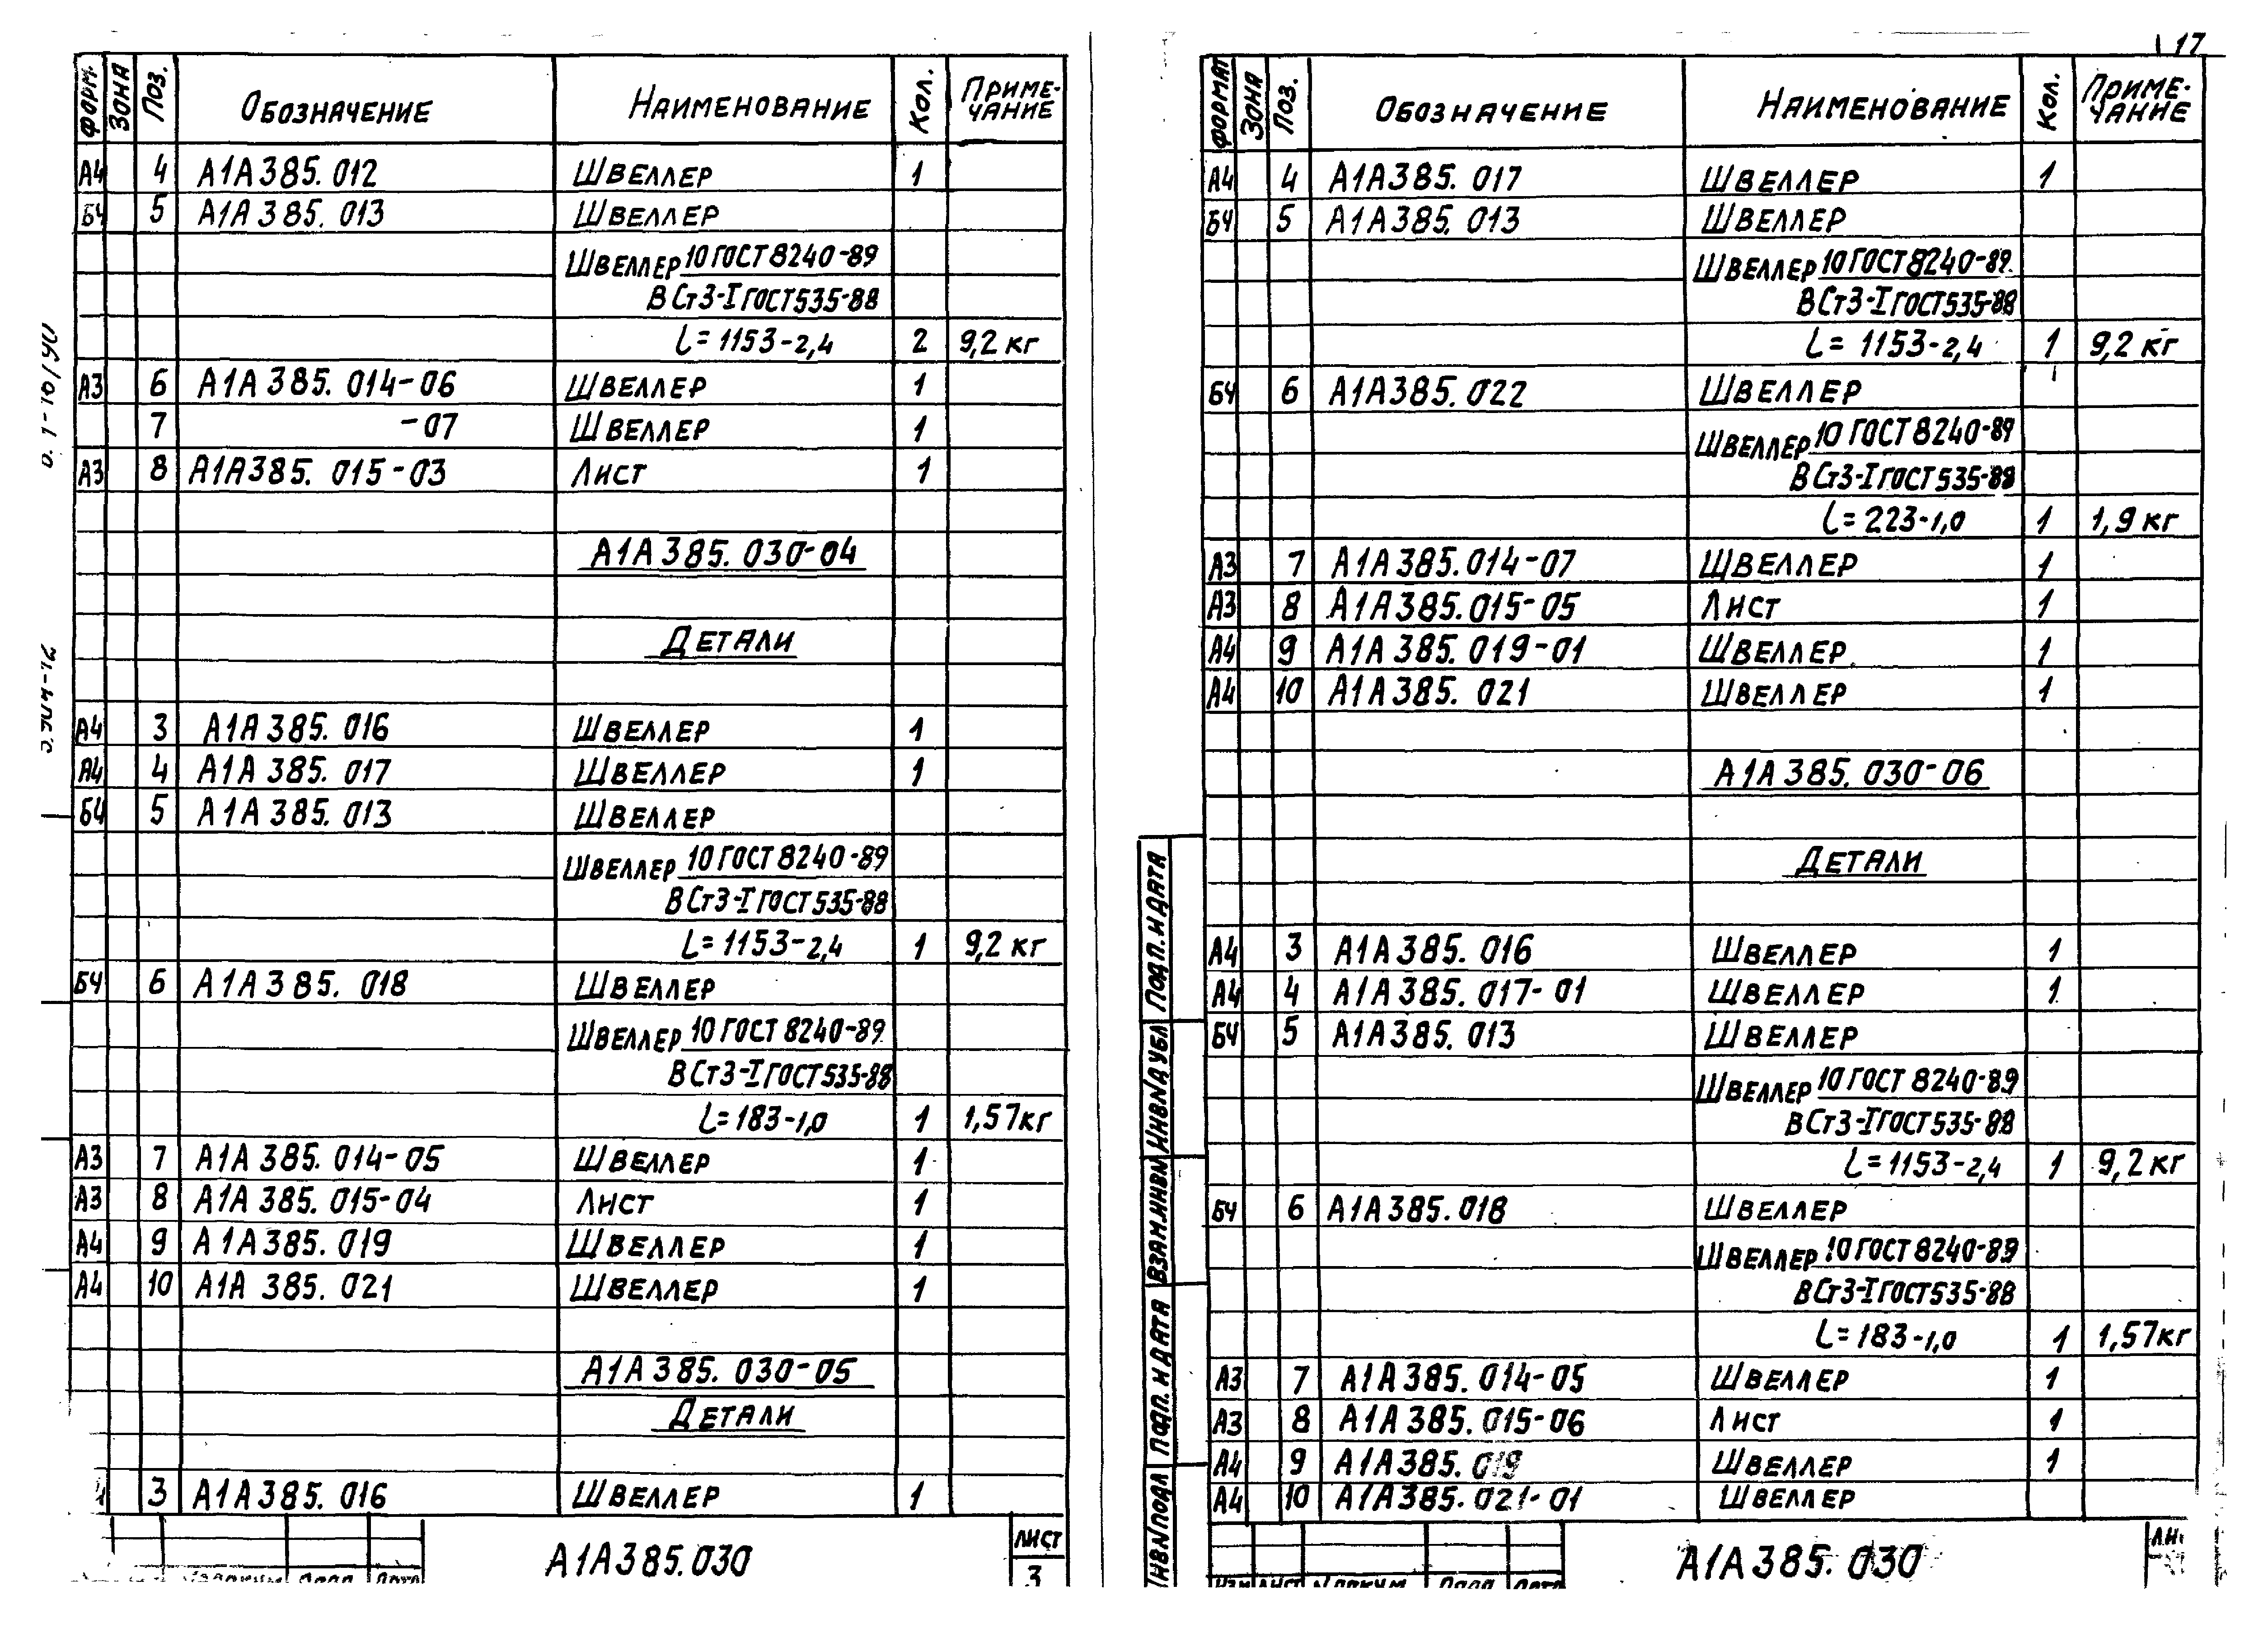 17
ФОРМ. ЗОНА ПОЗ. ОБОЗНАЧЕНИЕ НАИМЕНОВАНИЕ КОЛ. ПРИМЕ-
ЧАНИЕ
А4 4 А1А385.012 ШВЕЛЛЕР 1
БЧ 5 А1А385.013 ШВЕЛЛЕР
ШВЕЛЛЕР 10 ГОСТ 8240-89
ВСт3-I ГОСТ 535-88
L=1153-2,4 2 9,2 кг
А3 6 А1А385.014-06 ШВЕЛЛЕР 1
7 -07 ШВЕЛЛЕР 1
А3 8 А1А385.015-03 ЛИСТ 1
А1А385.030-04
ДЕТАЛИ
А4 3 А1А385.016 ШВЕЛЛЕР 1
А4 4 А1А385.017 ШВЕЛЛЕР 1
БЧ 5 А1А385.013 ШВЕЛЛЕР
ШВЕЛЛЕР 10 ГОСТ 8240-89
ВСт3-I ГОСТ 535-88
L=1153-2,4 1 9,2 кг
БЧ 6 А1А385.018 ШВЕЛЛЕР
ШВЕЛЛЕР 10 ГОСТ 8240-89
ВСт3-I ГОСТ 535-88
L=183-1,0 1 1,57 кг
А3 7 А1А385.014-05 ШВЕЛЛЕР 1
А3 8 А1А385.015-04 ЛИСТ 1
А4 9 А1А385.019 ШВЕЛЛЕР 1
А4 10 А1А385.021 ШВЕЛЛЕР 1
А1А385.030-05
ДЕТАЛИ
3 А1А385.016 ШВЕЛЛЕР 1
А1А385.030
ЛИСТ
3
ФОРМАТ ЗОНА ПОЗ. ОБОЗНАЧЕНИЕ НАИМЕНОВАНИЕ КОЛ. ПРИМЕ-
ЧАНИЕ
А4 4 А1А385.017 ШВЕЛЛЕР 1
БЧ 5 А1А385.013 ШВЕЛЛЕР
ШВЕЛЛЕР 10 ГОСТ 8240-89
ВСт3-I ГОСТ 535-88
L=1153-2,4 1 9,2 кг
БЧ 6 А1А385.022 ШВЕЛЛЕР
ШВЕЛЛЕР 10 ГОСТ 8240-89
ВСт3-I ГОСТ 535-88
L=223-1,0 1 1,9 кг
А3 7 А1А385.014-07 ШВЕЛЛЕР 1
А3 8 А1А385.015-05 ЛИСТ 1
А4 9 А1А385.019-01 ШВЕЛЛЕР 1
А4 10 А1А385.021 ШВЕЛЛЕР 1
А1А385.030-06
ДЕТАЛИ
А4 3 А1А385.016 ШВЕЛЛЕР 1
А4 4 А1А385.017-01 ШВЕЛЛЕР 1
БЧ 5 А1А385.013 ШВЕЛЛЕР
ШВЕЛЛЕР 10 ГОСТ 8240-89
ВСт3-I ГОСТ 535-88
L=1153-2,4 1 9,2 кг
БЧ 6 А1А385.018 ШВЕЛЛЕР
ШВЕЛЛЕР 10 ГОСТ 8240-89
ВСт3-I ГОСТ 535-88
L=183-1,0 1 1,57 кг
А3 7 А1А385.014-05 ШВЕЛЛЕР 1
А3 8 А1А385.015-06 ЛИСТ 1
А4 9 А1А385.019 ШВЕЛЛЕР 1
А4 10 А1А385.021-01 ШВЕЛЛЕР
ПОДП. И ДАТА
ИНВ № ДУБЛ
ВЗАМ. ИНВ №
ПОДП. И ДАТА
ИНВ № ПОДЛ
А1А385.030